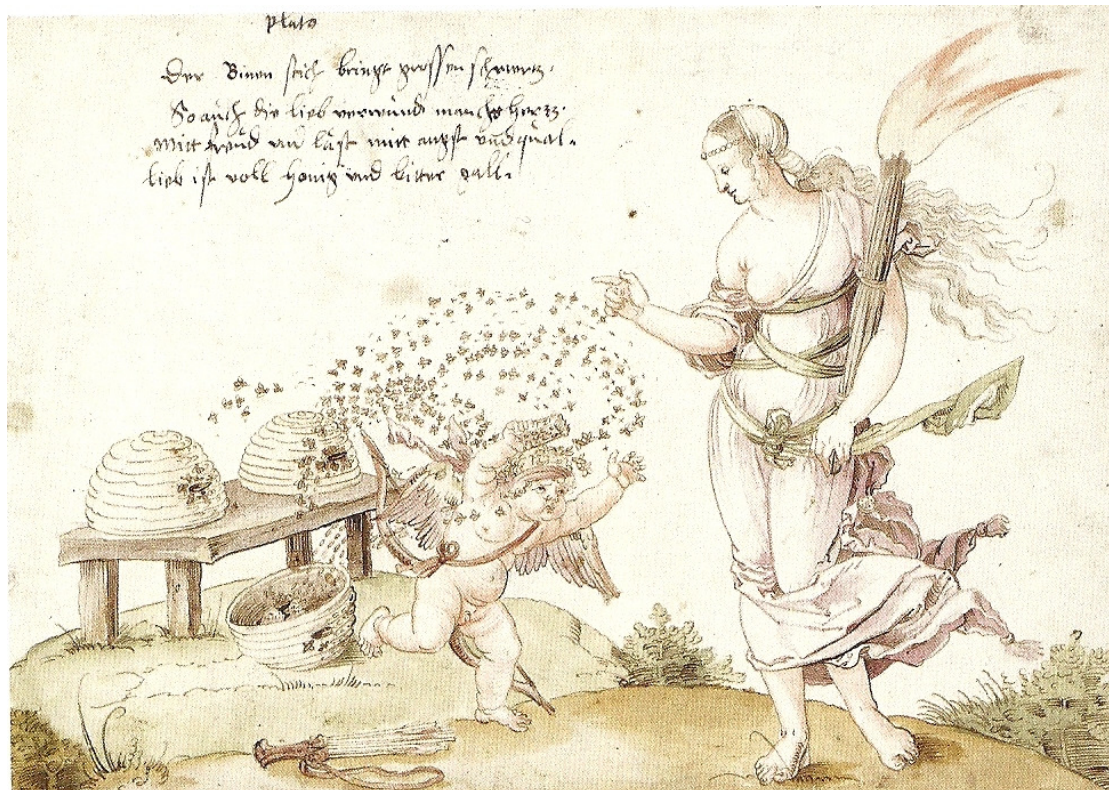 plato
Der Binen stich bringt grossen schmertz.
So auch die lieb verwund manchs hertz.
Mitt freud und lust mitt angst und qual.
lieb ist voll honig und bitter gall.